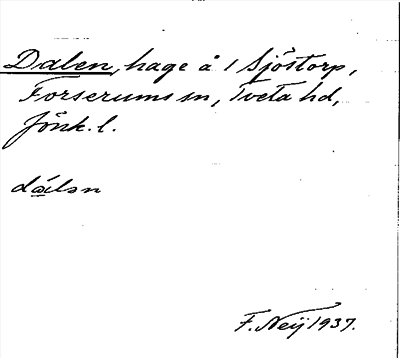 Dalen, hage å 1 Sjöstorp,
Forserums sn, Tveta hd,
Jönk. l.
dálən
F. Neij 1937.